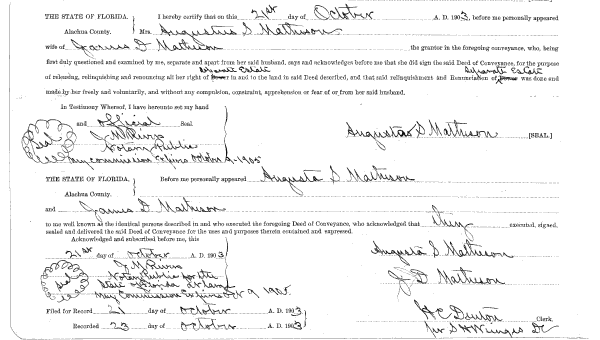 THE STATE OF FLORIDA. I hereby certify that on this 21st day of October A. D. 1903, before me personally appeared
Alachua County. Mrs. Augustus S Matheson
wife of James D Matheson the grantor in the foregoing conveyance, who, being
first duly questioned and examined by me, separate and apart from her said husband, says and acknowledges before me that she did sign the said Deed of Conveyance, for the purpose
Separate Estate Separate Estate
of releasing, relinquishing and renouncing all her right of in and to the land in said Deed described, and that said relinquishment and Renunciation of was done and
made by her freely and voluntarily, and without any compulsion, constraint, apprehension or fear of or from her said husband.
In Testimony Whereof, I have hereunto set my hand
and official Seal
Seal J M Rivers
Notary Public
Augustas S Matheson [SEAL.]
My commission Expires October 9-1905
THE STATE OF FLORIDA. Before me personally appeared Augusta S Matheson
Alachua County.
and James D Matheson
to me well known as the identical persons described in and who executed the foregoing Deed of Conveyance, who acknowledged that they executed, signed,
sealed and delivered the said Deed of Conveyance for the uses and purposes therein contained and expressed.
Acknowledged and subscribed before me, this
21st day of October A. D. 1903
Augusta S Matheson
J M Rivers
Notary Public for the
Seal State of Florida at large
J D Matheson
My Commission Expires Oct 9 1905.
Filed for Record 21 day of October A. D. 1903
H C Denton Clerk.
Recorded 23 day of October A. D. 1903
per S H Wienges DC